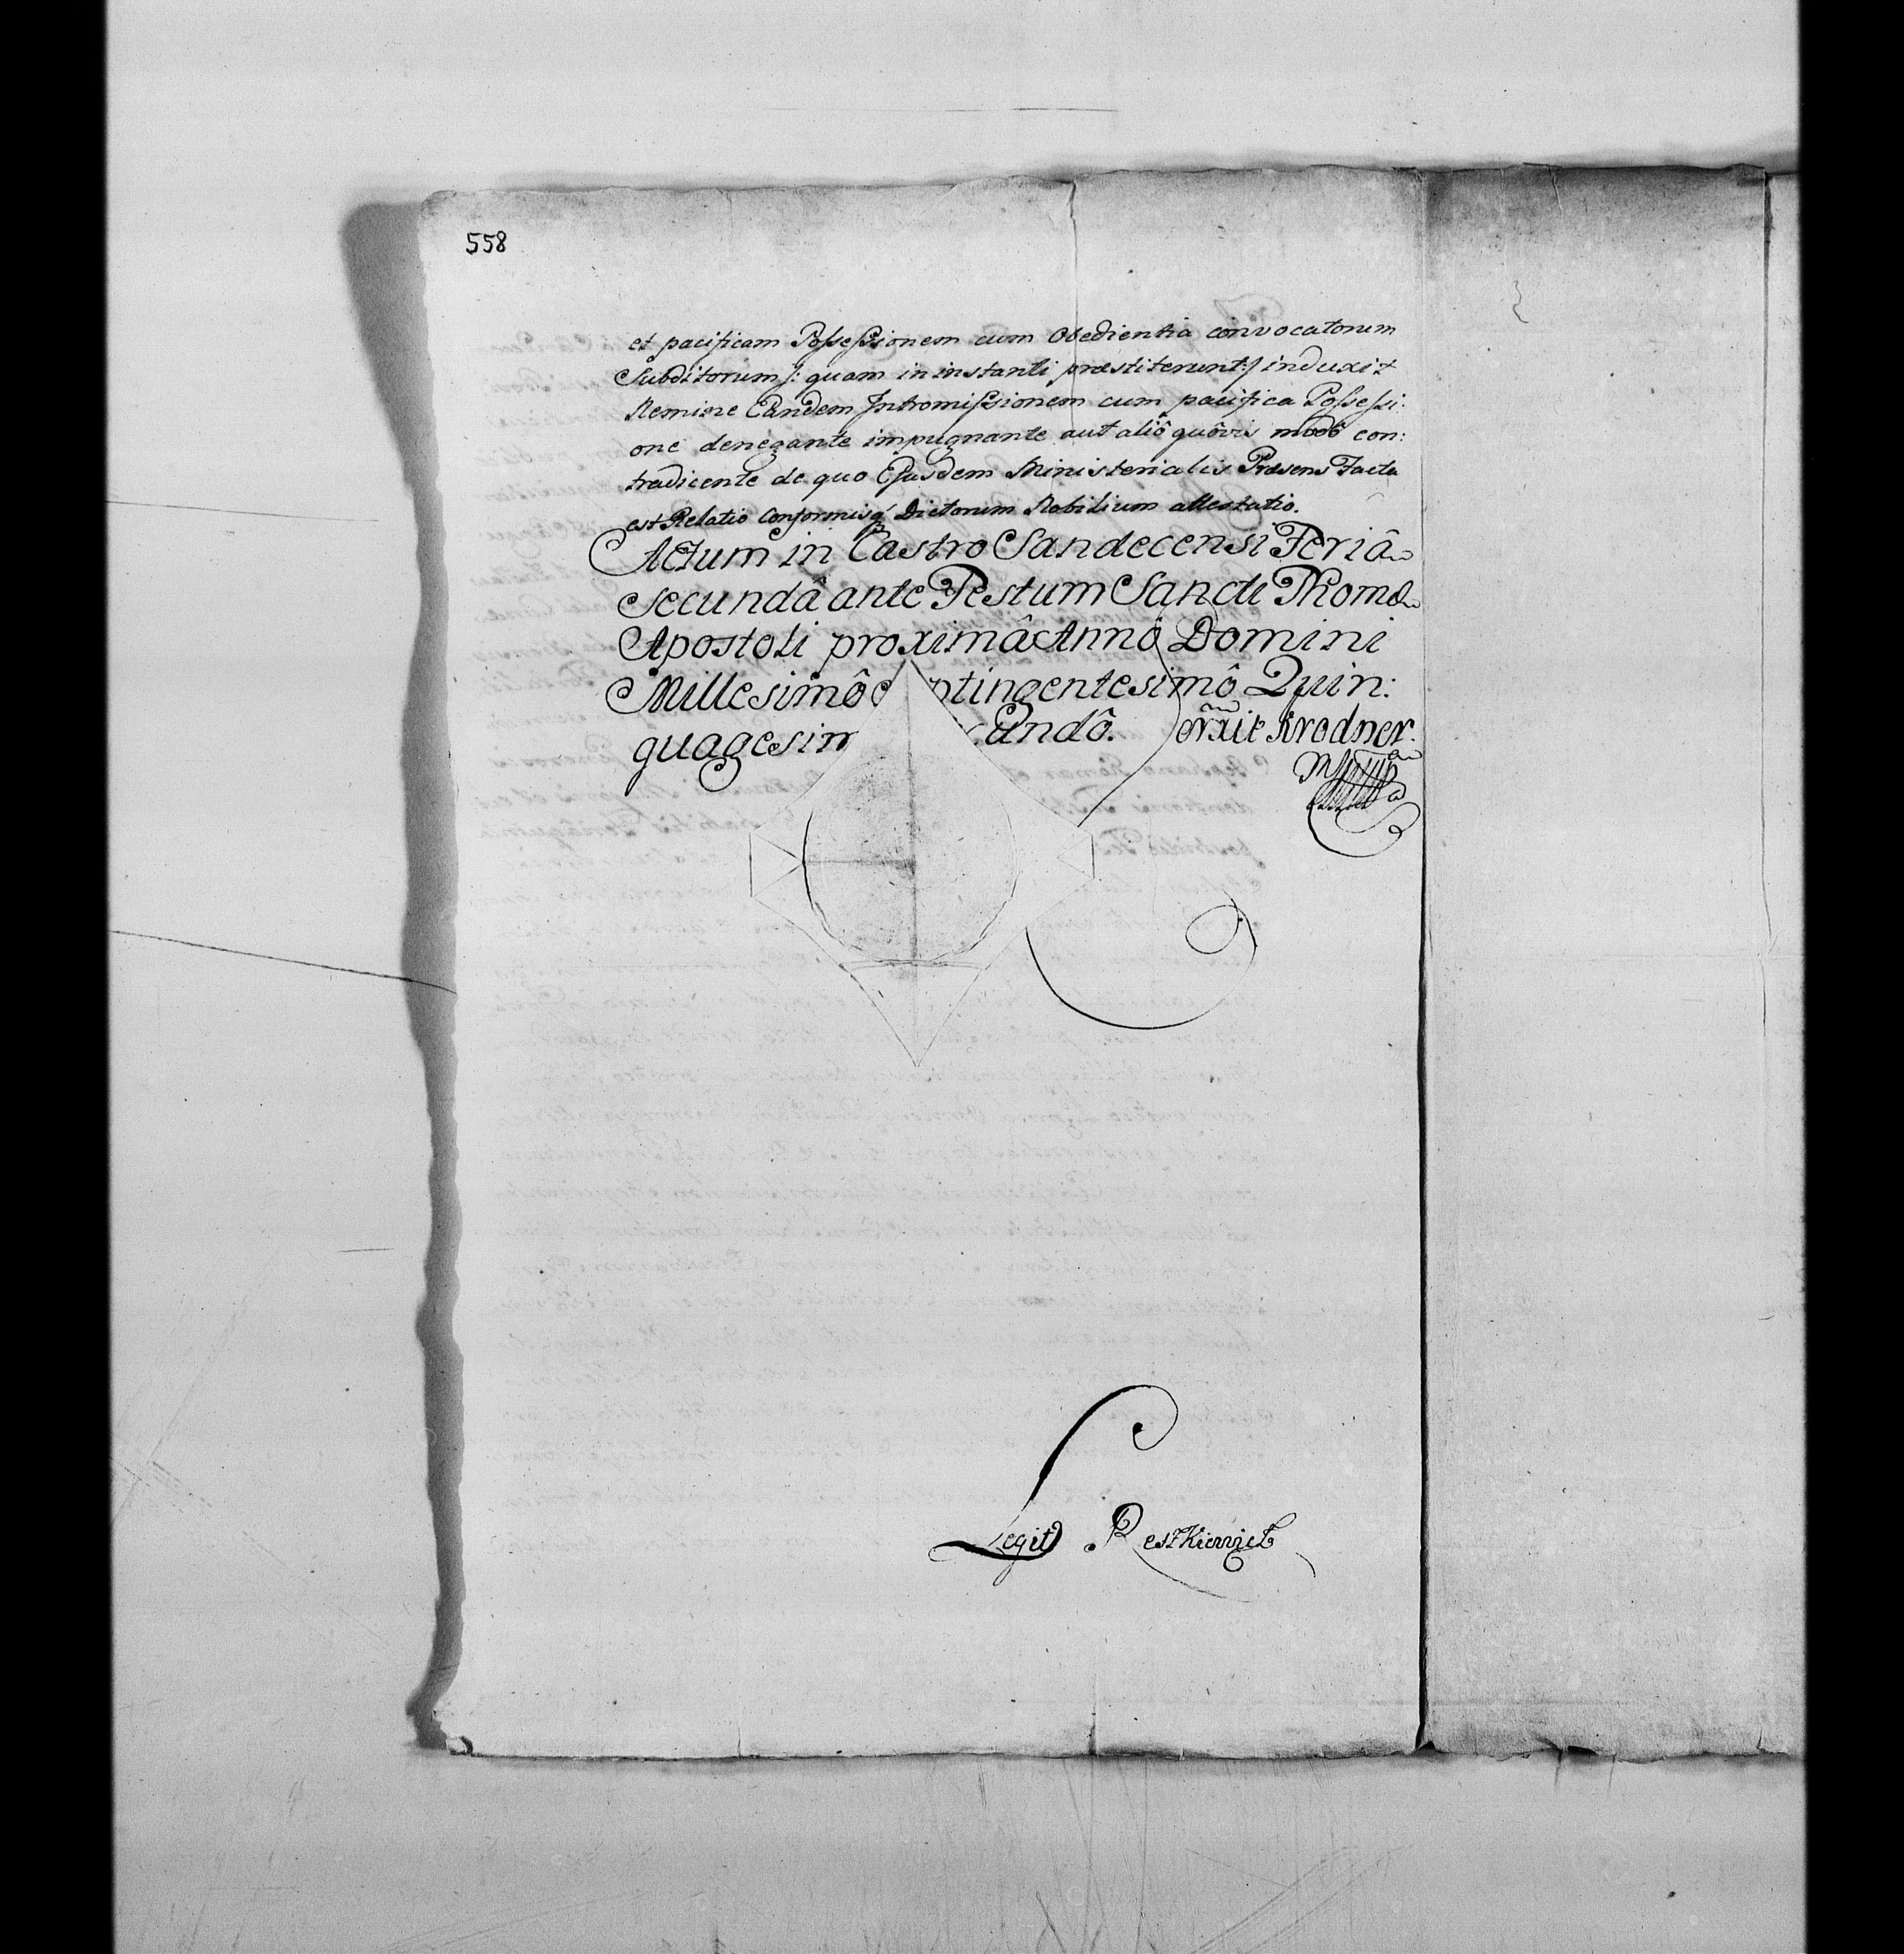 558
et pacificam Possessionem cum Obedientia convocatorum
Subditorum /: quam in instanti præstiterunt:/ induxit
Nemine Eandem Intromissionem cum pacifica Possessi:
one denegante impugnante aut aliô quôvis modô con:
tradicente de quo Ejusdem Ministerialis Præsens Facta
est Relatio Conformisq́ Dictorum Nobilium attestatio.
Actum in Castro Sandecensi Feriâ
Secundâ ante Festum Sancti Thomæ
Apostoli proximâ Annô Domini
Millesimô ntingentesimô Quin:
quagesim undô.
Legit Restkiewicz